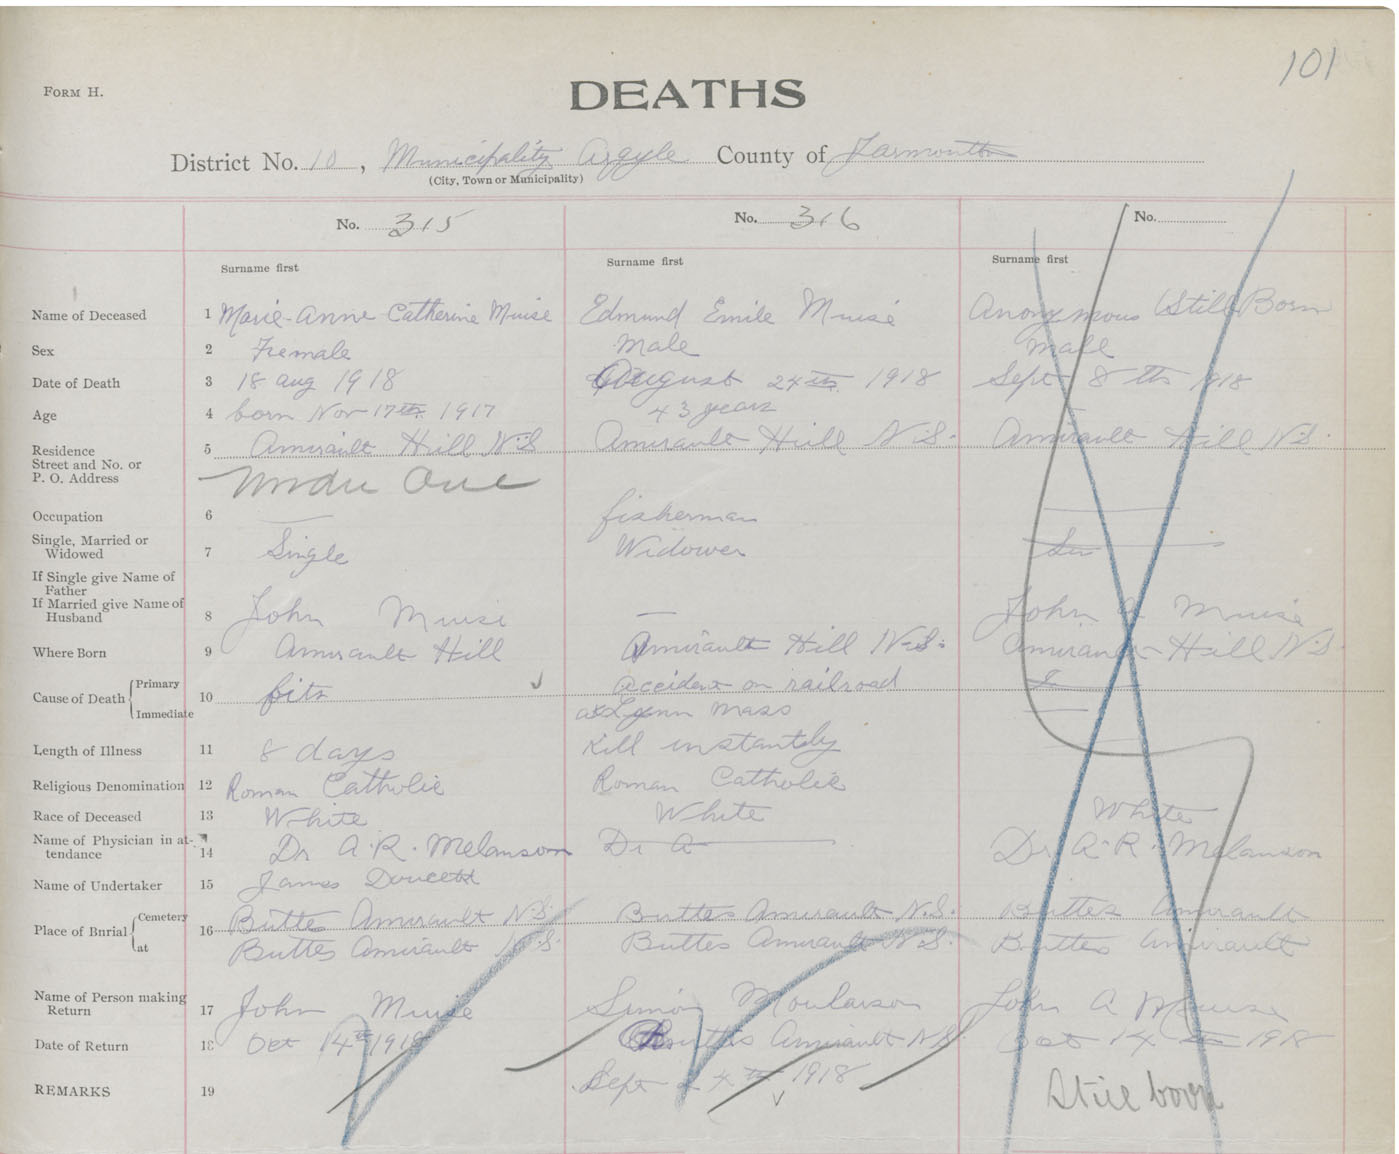 101
FORM H.
DEATHS
District No. 10, Municipality Argyle County of Yarmouth
(City, Town or Municipality)
No. 315 No. 316 No.
Surname first Surname first Surname first
Name of Deceased 1 Marie-Anne Catherine Muise Edmund Emile Muise Anonymous (Still Born
Sex 2 Female Male Male
Date of Death 3 18 aug 1918 August 24th 1918 Sept 8th 1918
Age 4 born Nov 17th 1917 43 years
Residence 5 Amirault Hill N.S. Amirault Hill N.S. Amirault Hill N.S.
Street and No. or
P. O. Address Under One
Occupation 6 fisherman
Single, Married or
Widowed 7 Single Widower
If Single give Name of
Father
If Married give Name of
Husband 8 John Muise — John A Muise
Where Born 9 Amirault Hill Amirault Hill N.S. Amirault Hill N.S.
Cause of Death Primary 10 fits Accident on railroad
Immediate at Lynn Mass
Length of Illness 11 8 days Kill instantly
Religious Denomination 12 Roman Catholic Roman Catholic
Race of Deceased 13 White White White
Name of Physician in at-
tendance 14 Dr A.R. Melanson Dr A Dr A.R. Melanson
Name of Undertaker 15 James Doucett
Place of Burial Cemetery 16 Buttes Amirault N.S. Buttes Amirault N.S. Buttes Amirault
at Buttes Amirault N.S. Buttes Amirault N.S. Buttes Amirault
Name of Person making
Return 17 John Muise Simon John A Muise
Date of Return 18 Oct 14th 1918 Buttes Amirault N.S. Oct 14th 1918
REMARKS 19 Sept 24th 1918 Still born